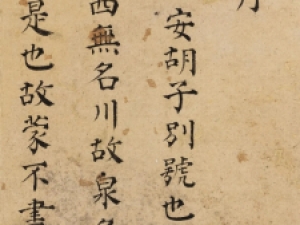 安胡子別號也
西無名川故泉
是也故蒙不書